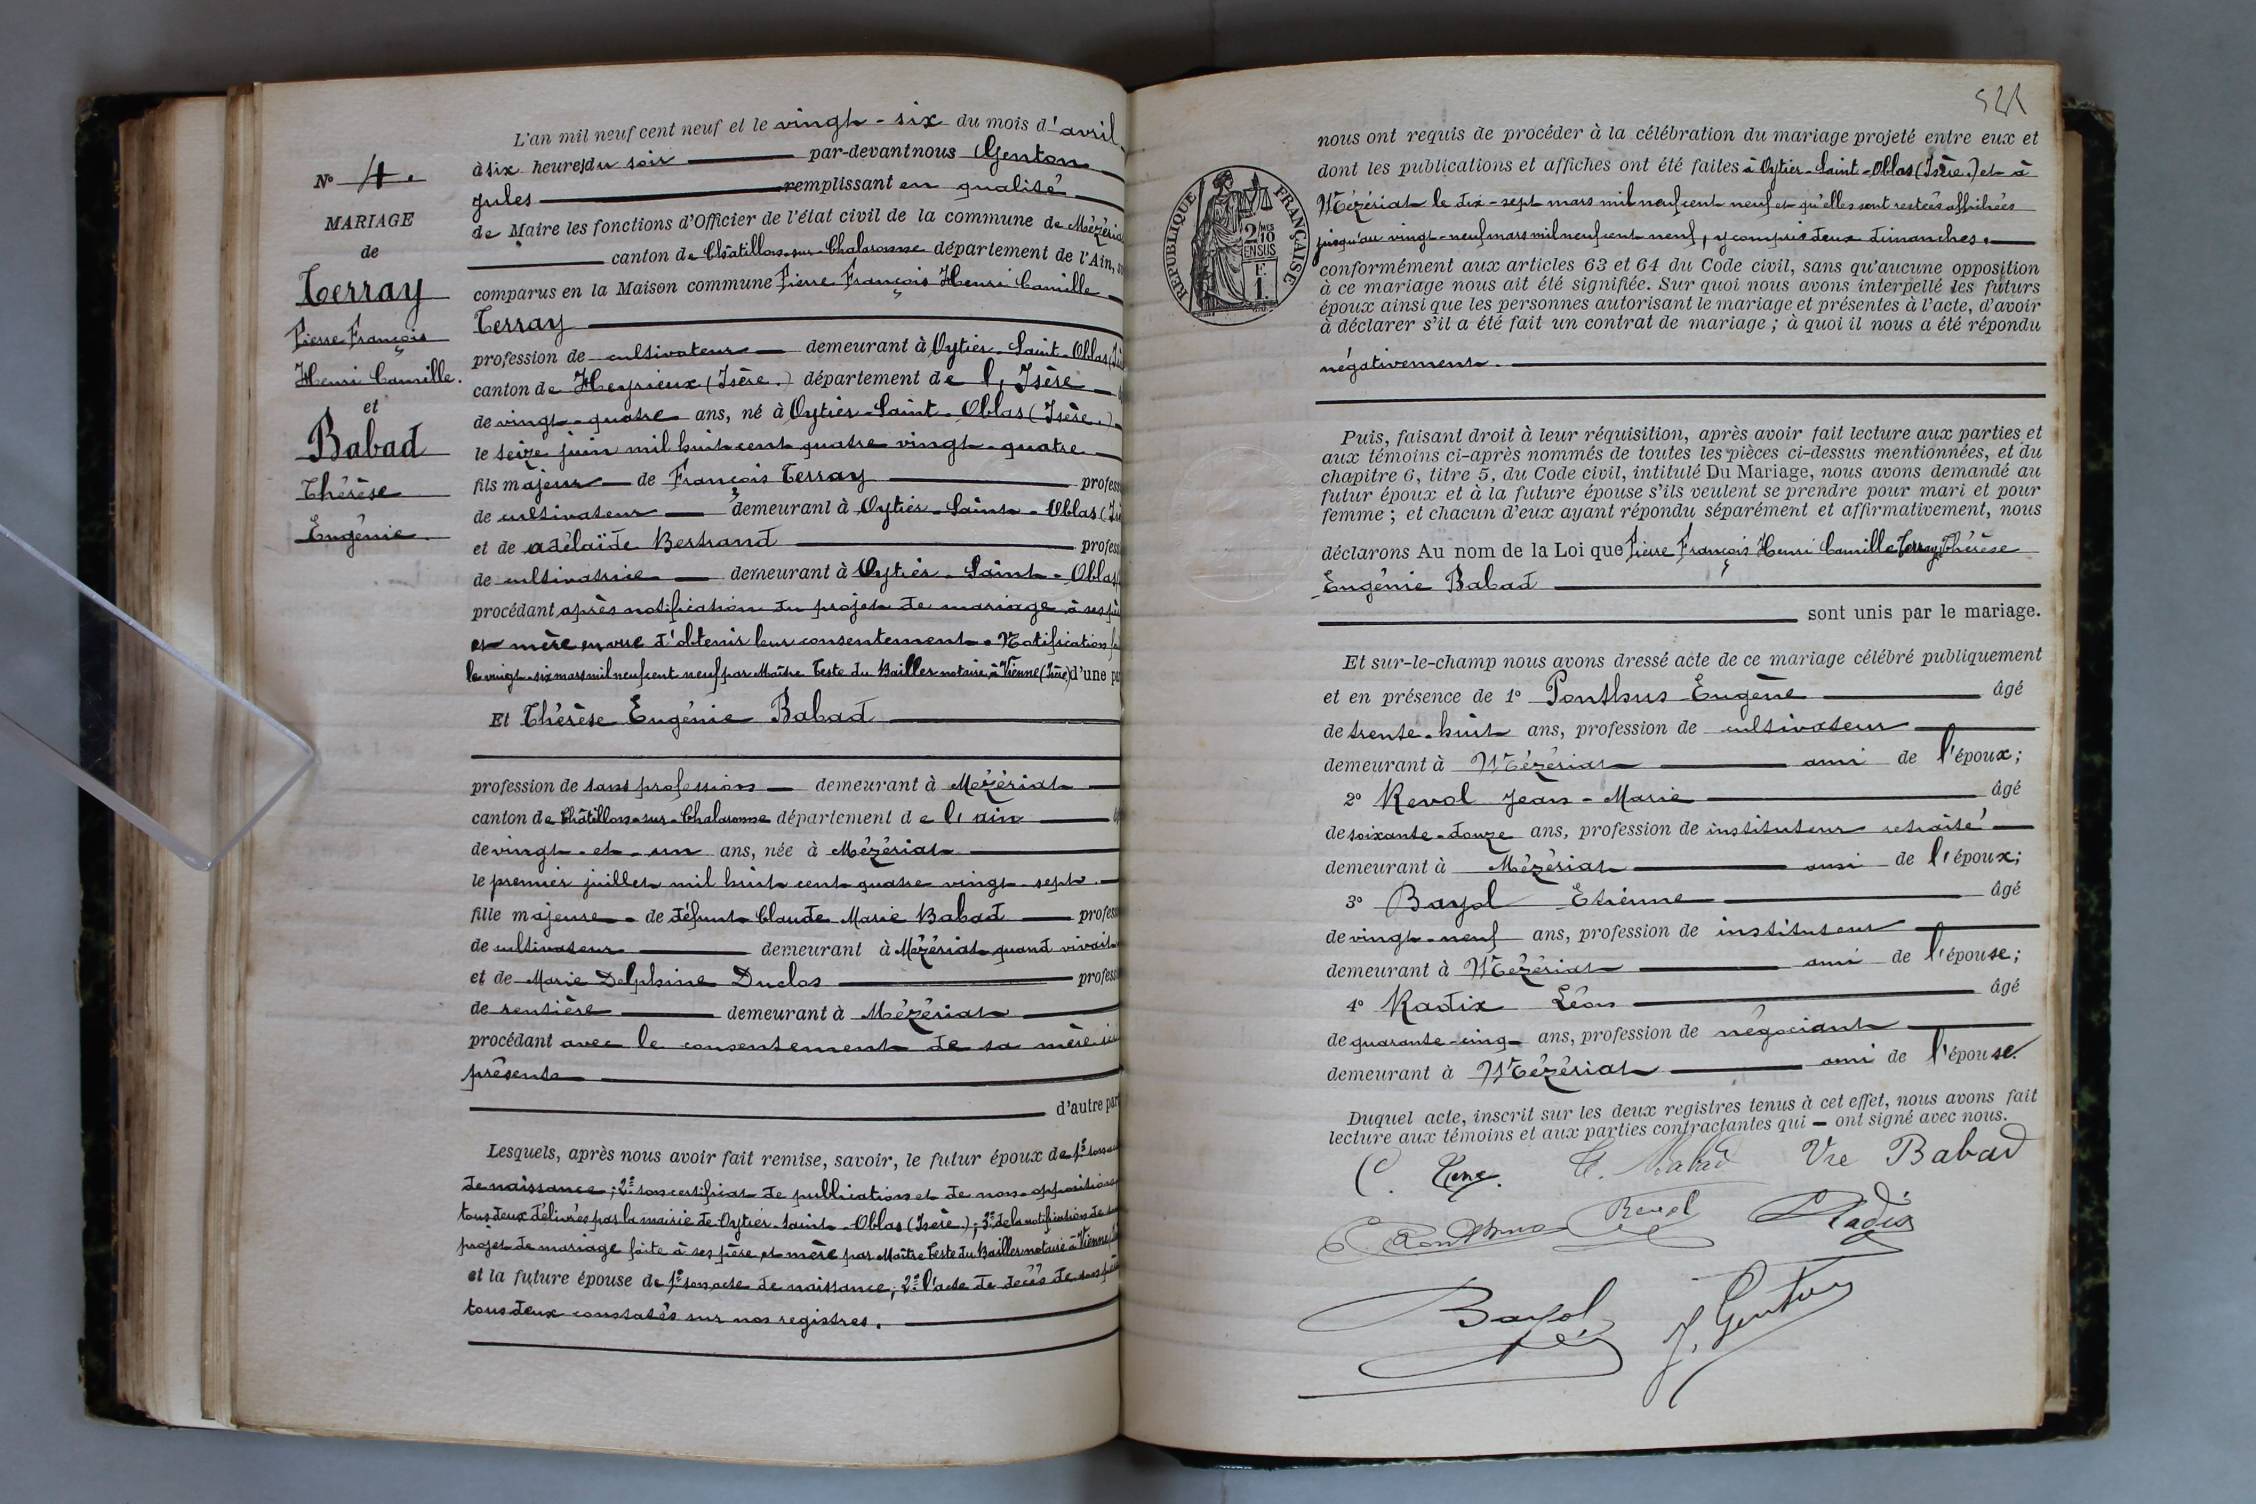 L'an mil neuf cent neuf et le vingt-six du mois d'avril
à six heures du soir par-devant nous Genton
Jules remplissant en qualité
de Maire les fonctions d'Officier de l'état civil de la commune de Mézéria
canton de Châtillon-sur-Chalaronne département de l'Ain,
comparus en la Maison commune Pierre François Henri Camille
Terray
profession de cultivateur demeurant à Oytier-Saint-Oblas (Is
canton de Heyrieux (Isère.) département de l'Isère
de vingt-quatre ans, né à Oytier-Saint-Oblas (Isère.)
le seize juin mil huit cent quatre vingt-quatre
fils majeur de François Terray profess
de cultivateur demeurant à Oytier-Saint-Oblas (Isè
et de adélaïde Bertrand profess
de cultivatrice demeurant à Oytier-Saint-Oblas
procédant après notification du projet de mariage à ses pè
et mère en vue d'obtenir leur consentement. Notification fa
le vingt-six mars mil neuf cent neuf par Maître Teste du Bailler notaire à Vienne (Isère) d'une pa
Et Thérèse Eugénie Babad
profession de sans profession demeurant à Mézériat
canton de Châtillon-sur-Chalaronne département de l'ain
de vingt-et-un ans, née à Mézériat
le premier juillet mil huit cent quatre vingt-sept.
fille majeure de défunt Claude Marie Babad profess
de cultivateur demeurant à Mézériat quand vivait
et de Marie Delphine Duclos profess
de rentière demeurant à Mézériat
procédant avec le consentement de sa mère ici
présente
d'autre part
Lesquels, après nous avoir fait remise, savoir, le futur époux de 1º son acte
de naissance; 2º son certificat de publication et de non-opposition
tous deux délivrés par la mairie de Oytier-Saint-Oblas (Isère.); 3º de la notification de son
projet de mariage faite à ses père et mère par Maître Teste du Bailler notaire à Vienne (Is
et la future épouse de 1º son acte de naissance; 2º l'acte de décès de son père
tous deux constatés sur nos registres.
Nº 4.
MARIAGE
de
Terray
Pierre François
Henri Camille.
et
Babad
Thérèse
Eugénie.
RÉPUBLIQUE FRANÇAISE
2/10
EN SUS
F.
1.
nous ont requis de procéder à la célébration du mariage projeté entre eux et
dont les publications et affiches ont été faites à Oytier-Saint-Oblas (Isère.) et à
Mézériat le dix-sept mars mil neuf cent neuf et qu'elles sont restées affichées
jusqu'au vingt-neuf mars mil neuf cent neuf, y compris deux dimanches.
conformément aux articles 63 et 64 du Code civil, sans qu'aucune opposition
à ce mariage nous ait été signifiée. Sur quoi nous avons interpellé les futurs
époux ainsi que les personnes autorisant le mariage et présentes à l'acte, d'avoir
à déclarer s'il a été fait un contrat de mariage; à quoi il nous a été répondu
négativement.
Puis, faisant droit à leur réquisition, après avoir fait lecture aux parties et
aux témoins ci-après nommés de toutes les pièces ci-dessus mentionnées, et du
chapitre 6, titre 5, du Code civil, intitulé Du Mariage, nous avons demandé au
futur époux et à la future épouse s'ils veulent se prendre pour mari et pour
femme; et chacun d'eux ayant répondu séparément et affirmativement, nous
déclarons Au nom de la Loi que Pierre François Henri Camille Terray, Thérèse
Eugénie Babad
sont unis par le mariage.
Et sur-le-champ nous avons dressé acte de ce mariage célébré publiquement
et en présence de 1º Ponthus Eugène âgé
de trente-huit ans, profession de cultivateur
demeurant à Mézériat ami de l'époux;
2º Revol Jean-Marie âgé
de soixante-douze ans, profession de instituteur retraité
demeurant à Mézériat ami de l'époux;
3º Bayol Etienne âgé
de vingt-neuf ans, profession de instituteur
demeurant à Mézériat ami de l'épouse;
4º Radix Léon âgé
de quarante-cinq ans, profession de négociant
demeurant à Mézériat ami de l'épouse.
Duquel acte, inscrit sur les deux registres tenus à cet effet, nous avons fait
lecture aux témoins et aux parties contractantes qui ont signé avec nous.
Babad Vve Babad
E. Ponthus Revol Radix
Bayol J. Genton